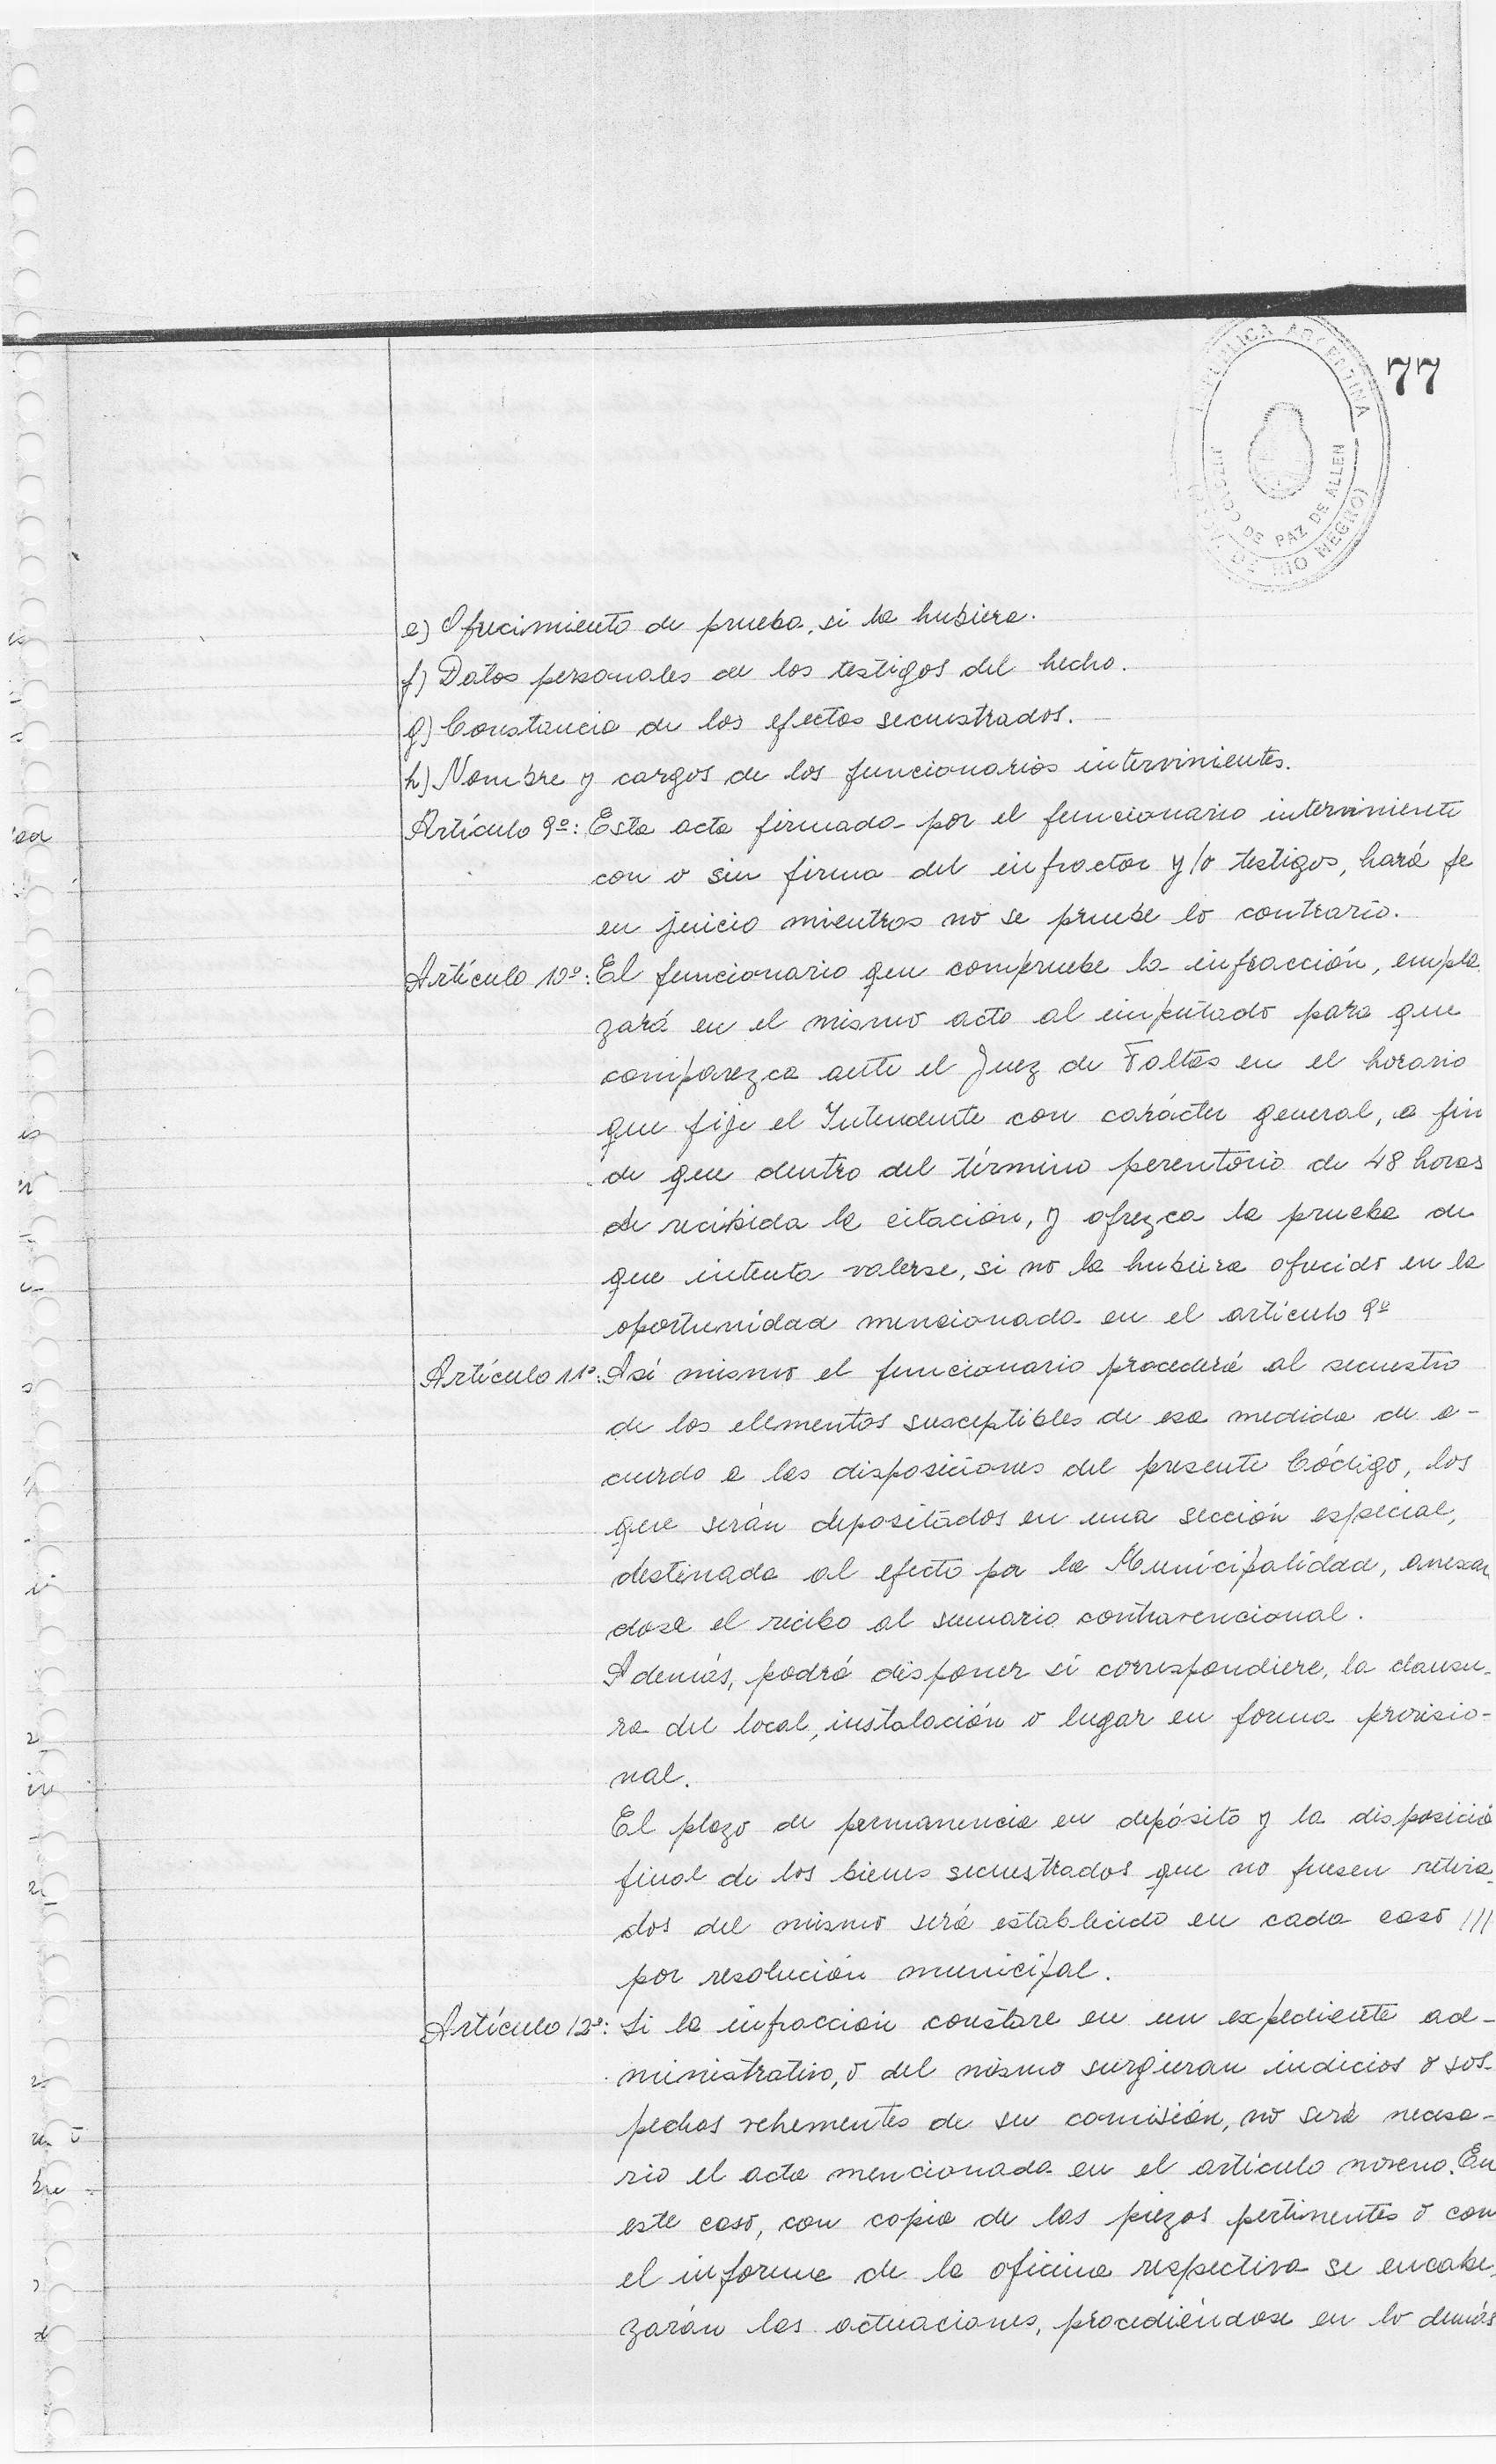 77
REPUBLICA ARGENTINA
JUZGADO DE PAZ DE ALLEN
DE RIO NEGRO)
e) Ofrecimiento de prueba, si la hubiera.
f) Datos personales de los testigos del hecho.
g) Constancia de los efectos secuestrados.
h) Nombre y cargos de los funcionarios intervinientes.
Artículo 9º: Esta acta firmada por el funcionario interviniente
con o sin firma del infractor y/o testigos, hará fe
en juicio mientras no se pruebe lo contrario.
Artículo 10º: El funcionario que compruebe la infracción, empla
zará en el mismo acto al imputado para que
comparezca ante el Juez de Faltas en el horario
que fije el Intendente con carácter general, a fin
de que dentro del término perentorio de 48 horas
de recibida la citación, y ofrezca la prueba de
que intenta valerse, si no la hubiera ofrecido en la
oportunidad mencionada en el artículo 9º
Artículo 11º: Así mismo el funcionario procederá al secuestro
de los elementos susceptibles de esa medida de a-
cuerdo a las disposiciones del presente Código, los
que serán depositados en una sección especial,
destinada al efecto por la Municipalidad, anexan
dose el recibo al sumario contravencional.
Además, podrá disponer si correspondiere, la clausu-
ra del local, instalación o lugar en forma provisio-
nal.
El plazo de permanencia en depósito y la disposició
final de los bienes secuestrados que no fuesen retira
dos del mismo será establecido en cada caso ///
por resolución municipal.
Artículo 12º: Si la infracción constare en un expediente ad-
ministrativo, o del mismo surgieran indicios o sos-
pechas vehementes de su comisión, no será necesa-
rio el acta mencionada en el artículo noveno. En
este caso, con copia de las piezas pertinentes o con
el informe de la oficina respectiva se encabe
zarán las actuaciones, procediéndose en lo demás